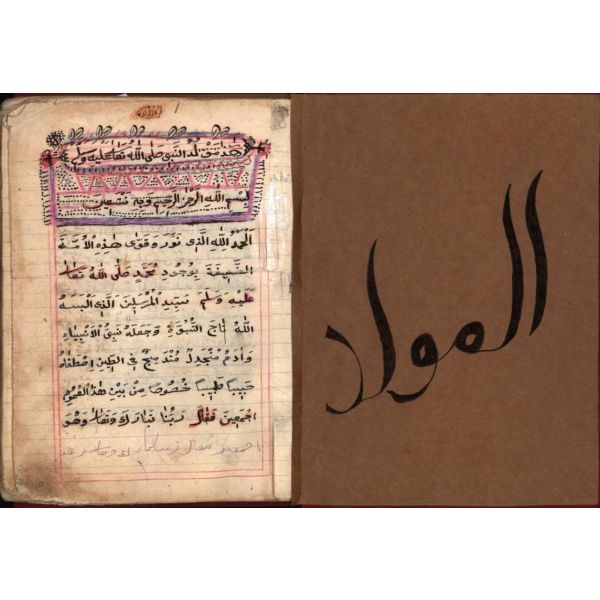 هٰذَا مَوْلِدُ النَّبِيِّ صَلَّى اللّٰهُ تَعَالٰى عَلَيْهِ وَسَلَّمَ
بِسْمِ اللّٰهِ الرَّحْمٰنِ الرَّحِيمِ وَبِهِ نَسْتَعِينُ
اَلْحَمْدُ لِلّٰهِ الَّذِي نَوَّرَ وَقَوَّى هٰذِهِ الْاُمَّةَ
الضَّعِيفَةَ بِوُجُودِ مُحَمَّدٍ صَلَّى اللّٰهُ تَعَالٰى
عَلَيْهِ وَسَلَّمَ سَيِّدِ الْمُرْسَلِينَ الَّذِي اَلْبَسَهُ
اللّٰهُ تَاجَ النُّبُوَّةِ وَجَعَلَهُ نَبِيَّ الْاَنْبِيَاءِ
وَاٰدَمُ مُنْجَدِلٌ مُنْدَمِجٌ فِي الطِّينِ اِصْطَفَاهُ
حَبِيبًا طَبِيبًا خُصُوصًا مِنْ بَيْنِ هٰذَا الْقَوْمِ
اَجْمَعِينَ فَقَالَ رَبُّنَا تَبَارَكَ وَتَعَالٰى وَهُوَ
المولد